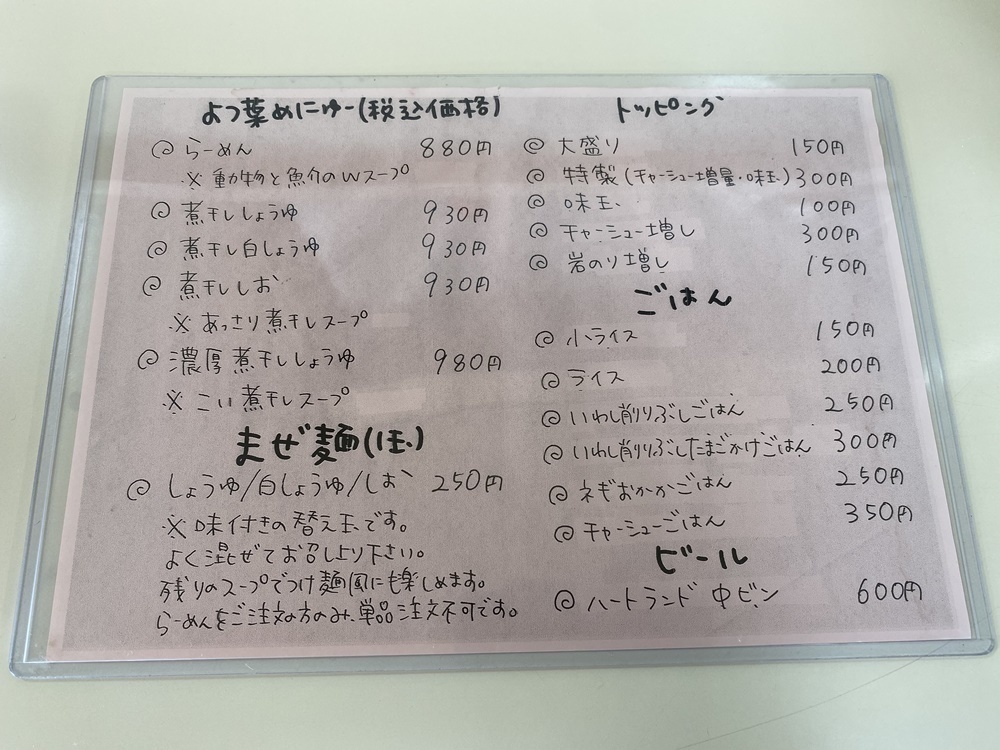 よつ葉めにゅー(税込価格)
◎ らーめん 880円
※ 動物と魚介のWスープ
◎ 煮干ししょうゆ 930円
◎ 煮干し白しょうゆ 930円
◎ 煮干ししお 930円
※ あっさり煮干しスープ
◎ 濃厚煮干ししょうゆ 980円
※ こい煮干しスープ
まぜ麺(1玉)
◎ しょうゆ/白しょうゆ/しお 250円
※ 味付きの替え玉です。
よく混ぜてお召し上り下さい。
残りのスープでつけ麺風にも楽しめます。
らーめんをご注文の方のみ、単品注文不可です。
トッピング
◎ 大盛り 150円
◎ 特製(チャーシュー増量・味玉) 300円
◎ 味玉 100円
◎ チャーシュー増し 300円
◎ 岩のり増し 150円
ごはん
◎ 小ライス 150円
◎ ライス 200円
◎ いわし削りぶしごはん 250円
◎ いわし削りぶしたまごかけごはん 300円
◎ ネギおかかごはん 250円
◎ チャーシューごはん 350円
ビール
◎ ハートランド 中ビン 600円